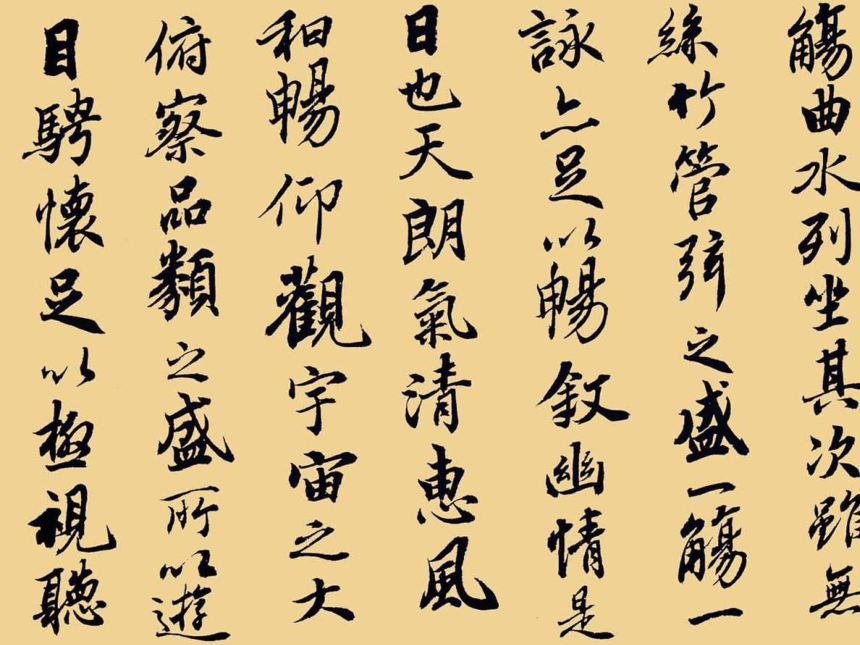 觴曲水列坐其次雖無
絲竹管弦之盛一觴一
詠亦足以暢叙幽情是
日也天朗氣清惠風
和暢仰觀宇宙之大
俯察品類之盛所以遊
目騁懷足以極視聽